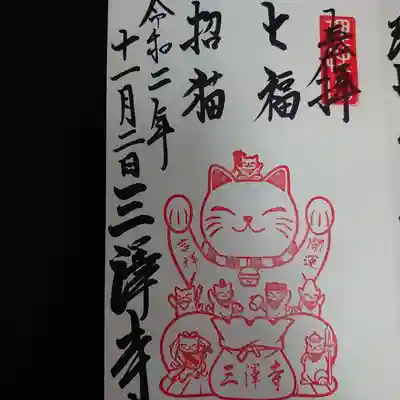 奉拝
七福
招猫
令和二年
十一月二日三澤寺
開運
吉祥
三澤寺